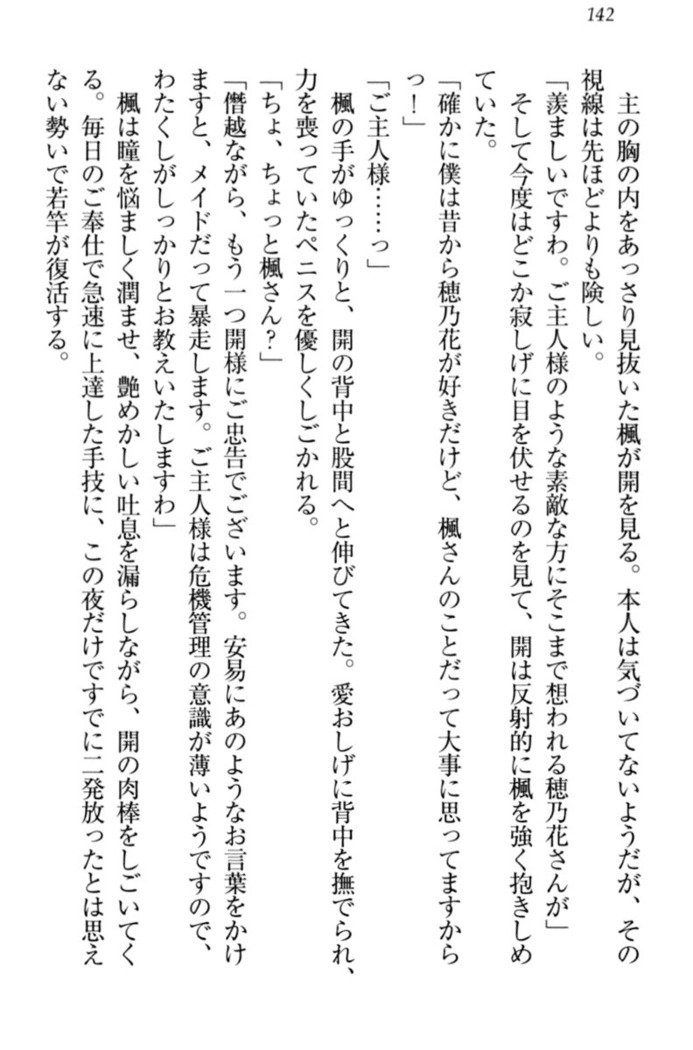 142
主の胸の内をあっさり見抜いた楓が開を見る。本人は気づいてないようだが、その
視線は先ほどよりも険しい。
「羨ましいですわ。ご主人様のような素敵な方にそこまで想われる穂乃花さんが」
そして今度はどこか寂しげに目を伏せるのを見て、開は反射的に楓を強く抱きしめ
ていた。
「確かに僕は昔から穂乃花が好きだけど、楓さんのことだって大事に思ってますから
っ！」
「ご主人様……っ」
楓の手がゆっくりと、開の背中と股間へと伸びてきた。愛おしげに背中を撫でられ、
力を喪っていたペニスを優しくしごかれる。
「ちょ、ちょっと楓さん？」
「僭越ながら、もう一つ開様にご忠告でございます。安易にあのようなお言葉をかけ
ますと、メイドだって暴走します。ご主人様は危機管理の意識が薄いようですので、
わたくしがしっかりとお教えいたしますわ」
楓は瞳を悩ましく潤ませ、艶めかしい吐息を漏らしながら、開の肉棒をしごいてく
る。毎日のご奉仕で急速に上達した手技に、この夜だけですでに二発放ったとは思え
ない勢いで若竿が復活する。